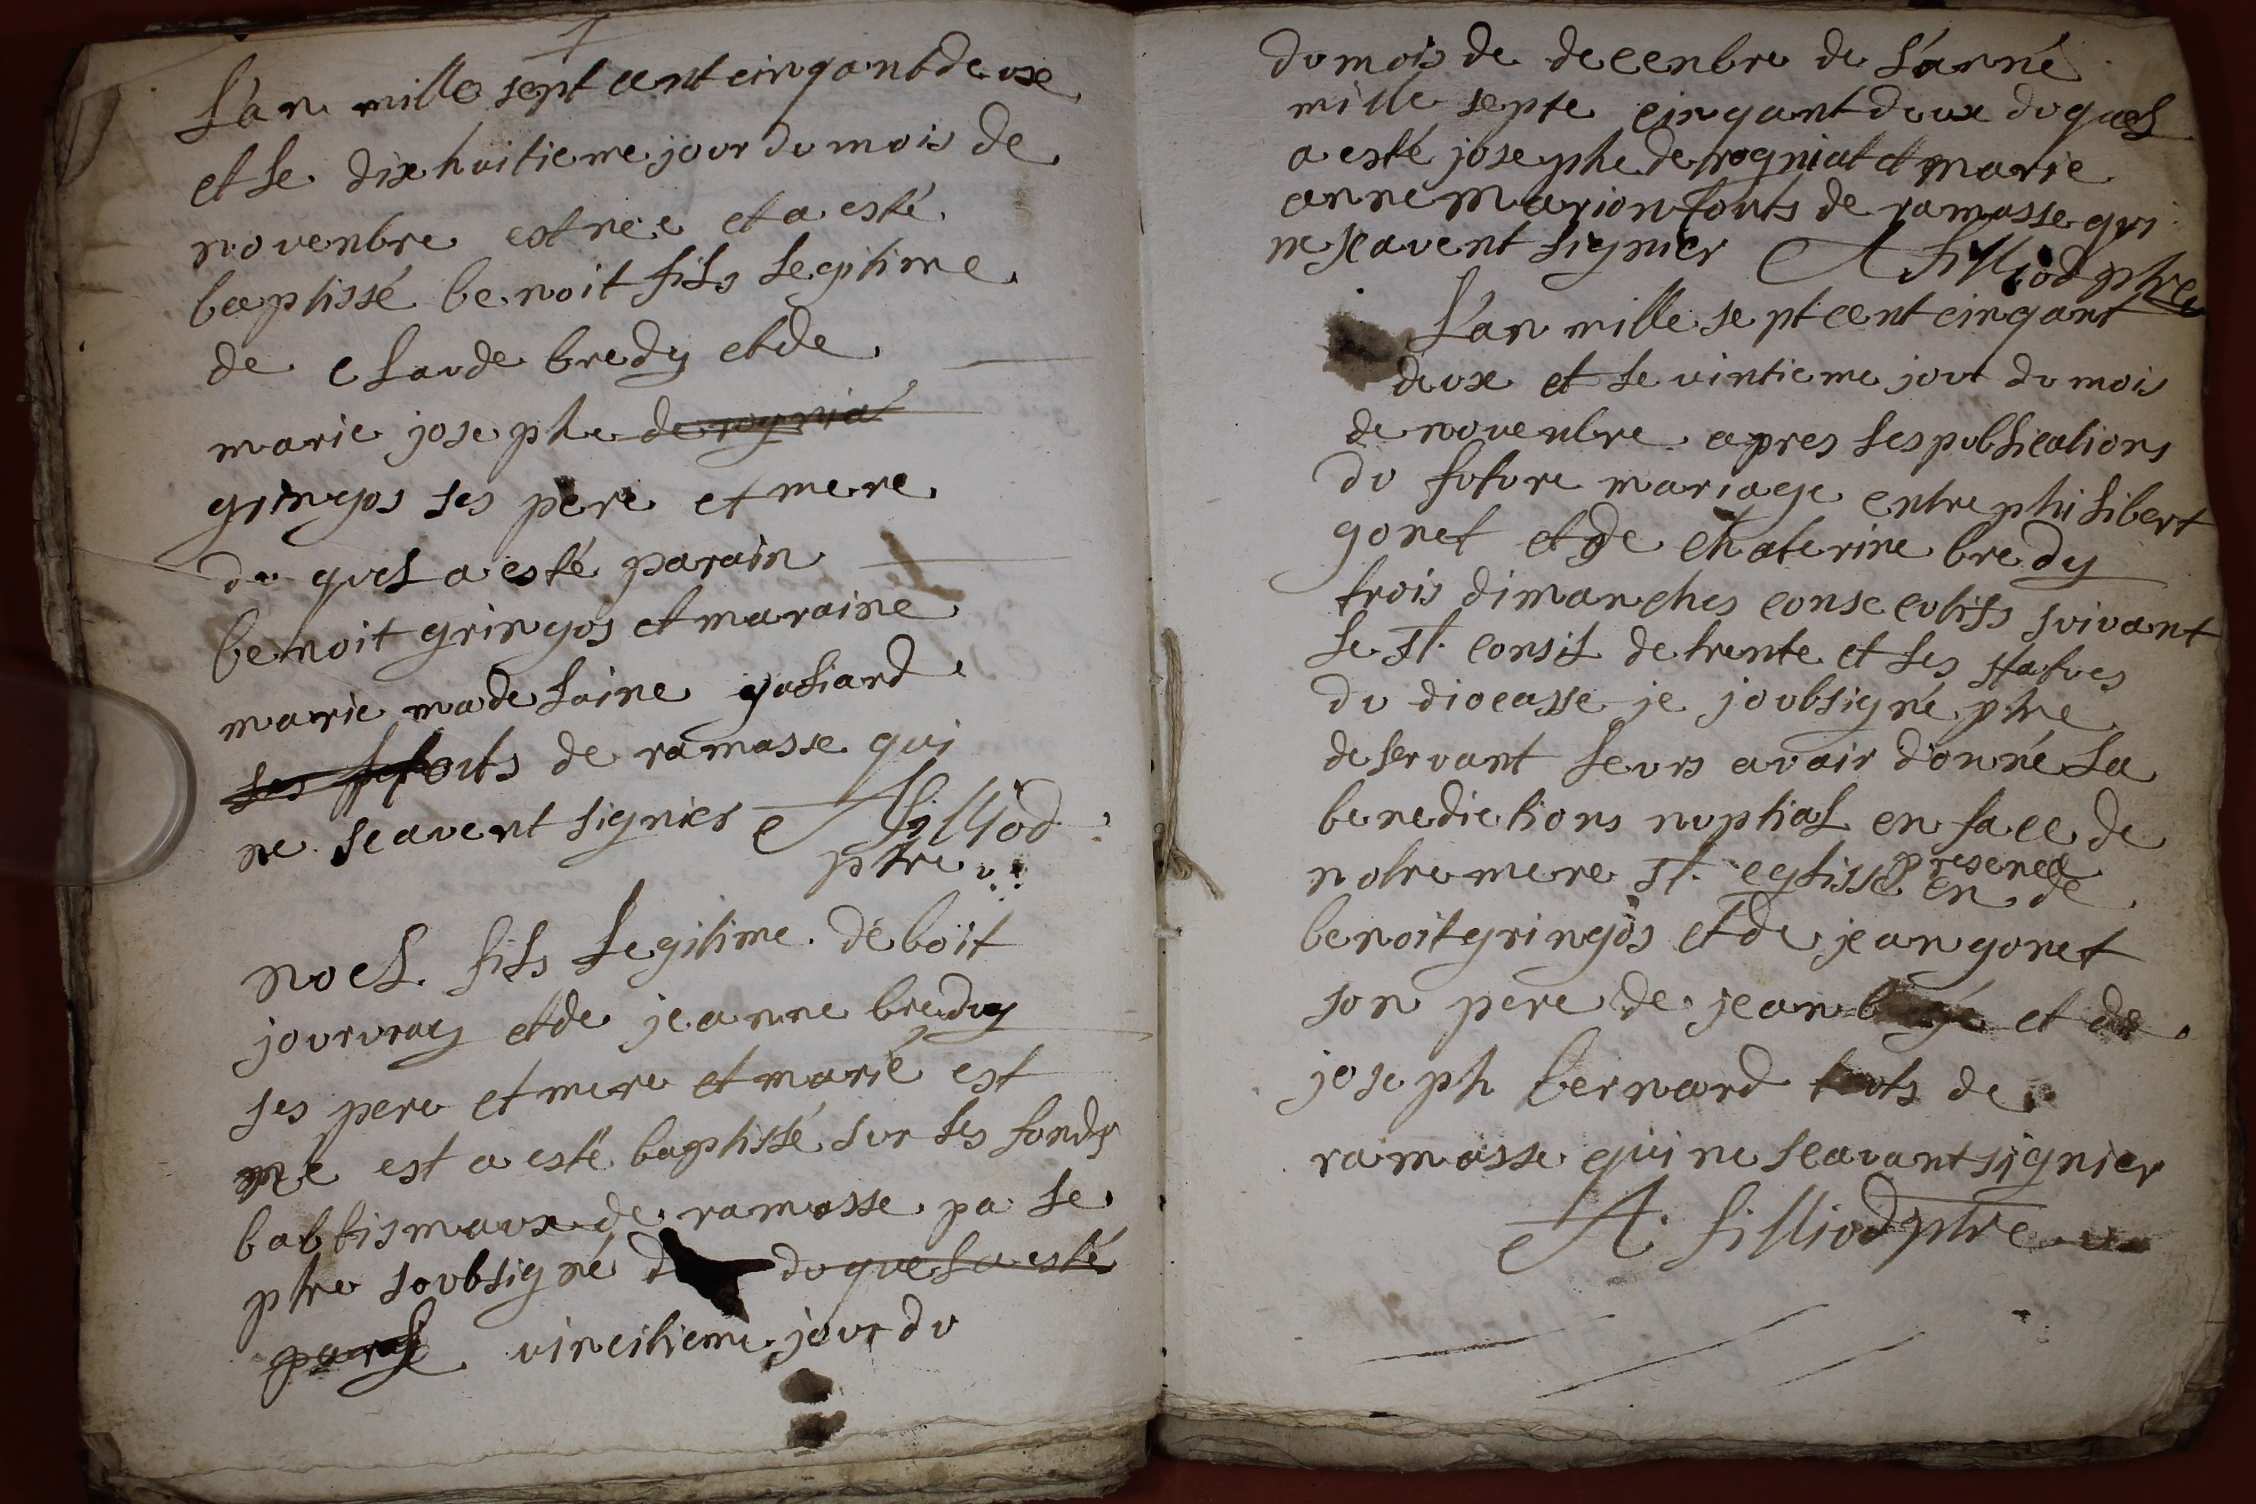 L'an mille sept cent cinqant deuxe
et le dix huitieme jour du mois de
novenbre est nee et a esté
baptissé benoit fils legitime
de claude bredy et de
marie josephe de rogniat
gringos ses pere et mere
du quel a esté parain
benoit gringos et maraine
marie madelaine galiard
touts de ramasse qui
ne scavent signier A filliod
ptre
noel fils legitime de boit
jourvray et de jeanne bredy
ses pere et mere et marié est
né est a esté baptissé sur les fonds
babtismaux de ramasse pa le
ptre soubsigné duquel a esté
vincitieme jour du
du mois de decenbre de l'anné
mille septe cinqant deux duquel
a esté josephe de rogniat et marie
anne marion touts de ramasse qui
ne scavent signier A filliod ptre
L'an mille sept cent cinqant
deuxe et le vintieme jour du mois
de novenbre apres les publications
du future mariage entre philibert
gonet et de chaterine bredy
trois dimanches consecutifs suivant
le st. consil de trente et les statues
du dioeasse je soubsigné ptre
deservant leurs avoir donné la
benedictions nuptial en face de
notre mere st. eglisse en presence de
benoit gringos et de jean gonet
son pere de jean et de
joseph bernard touts de
ramasse qui ne scavant signier
A. filliod ptre